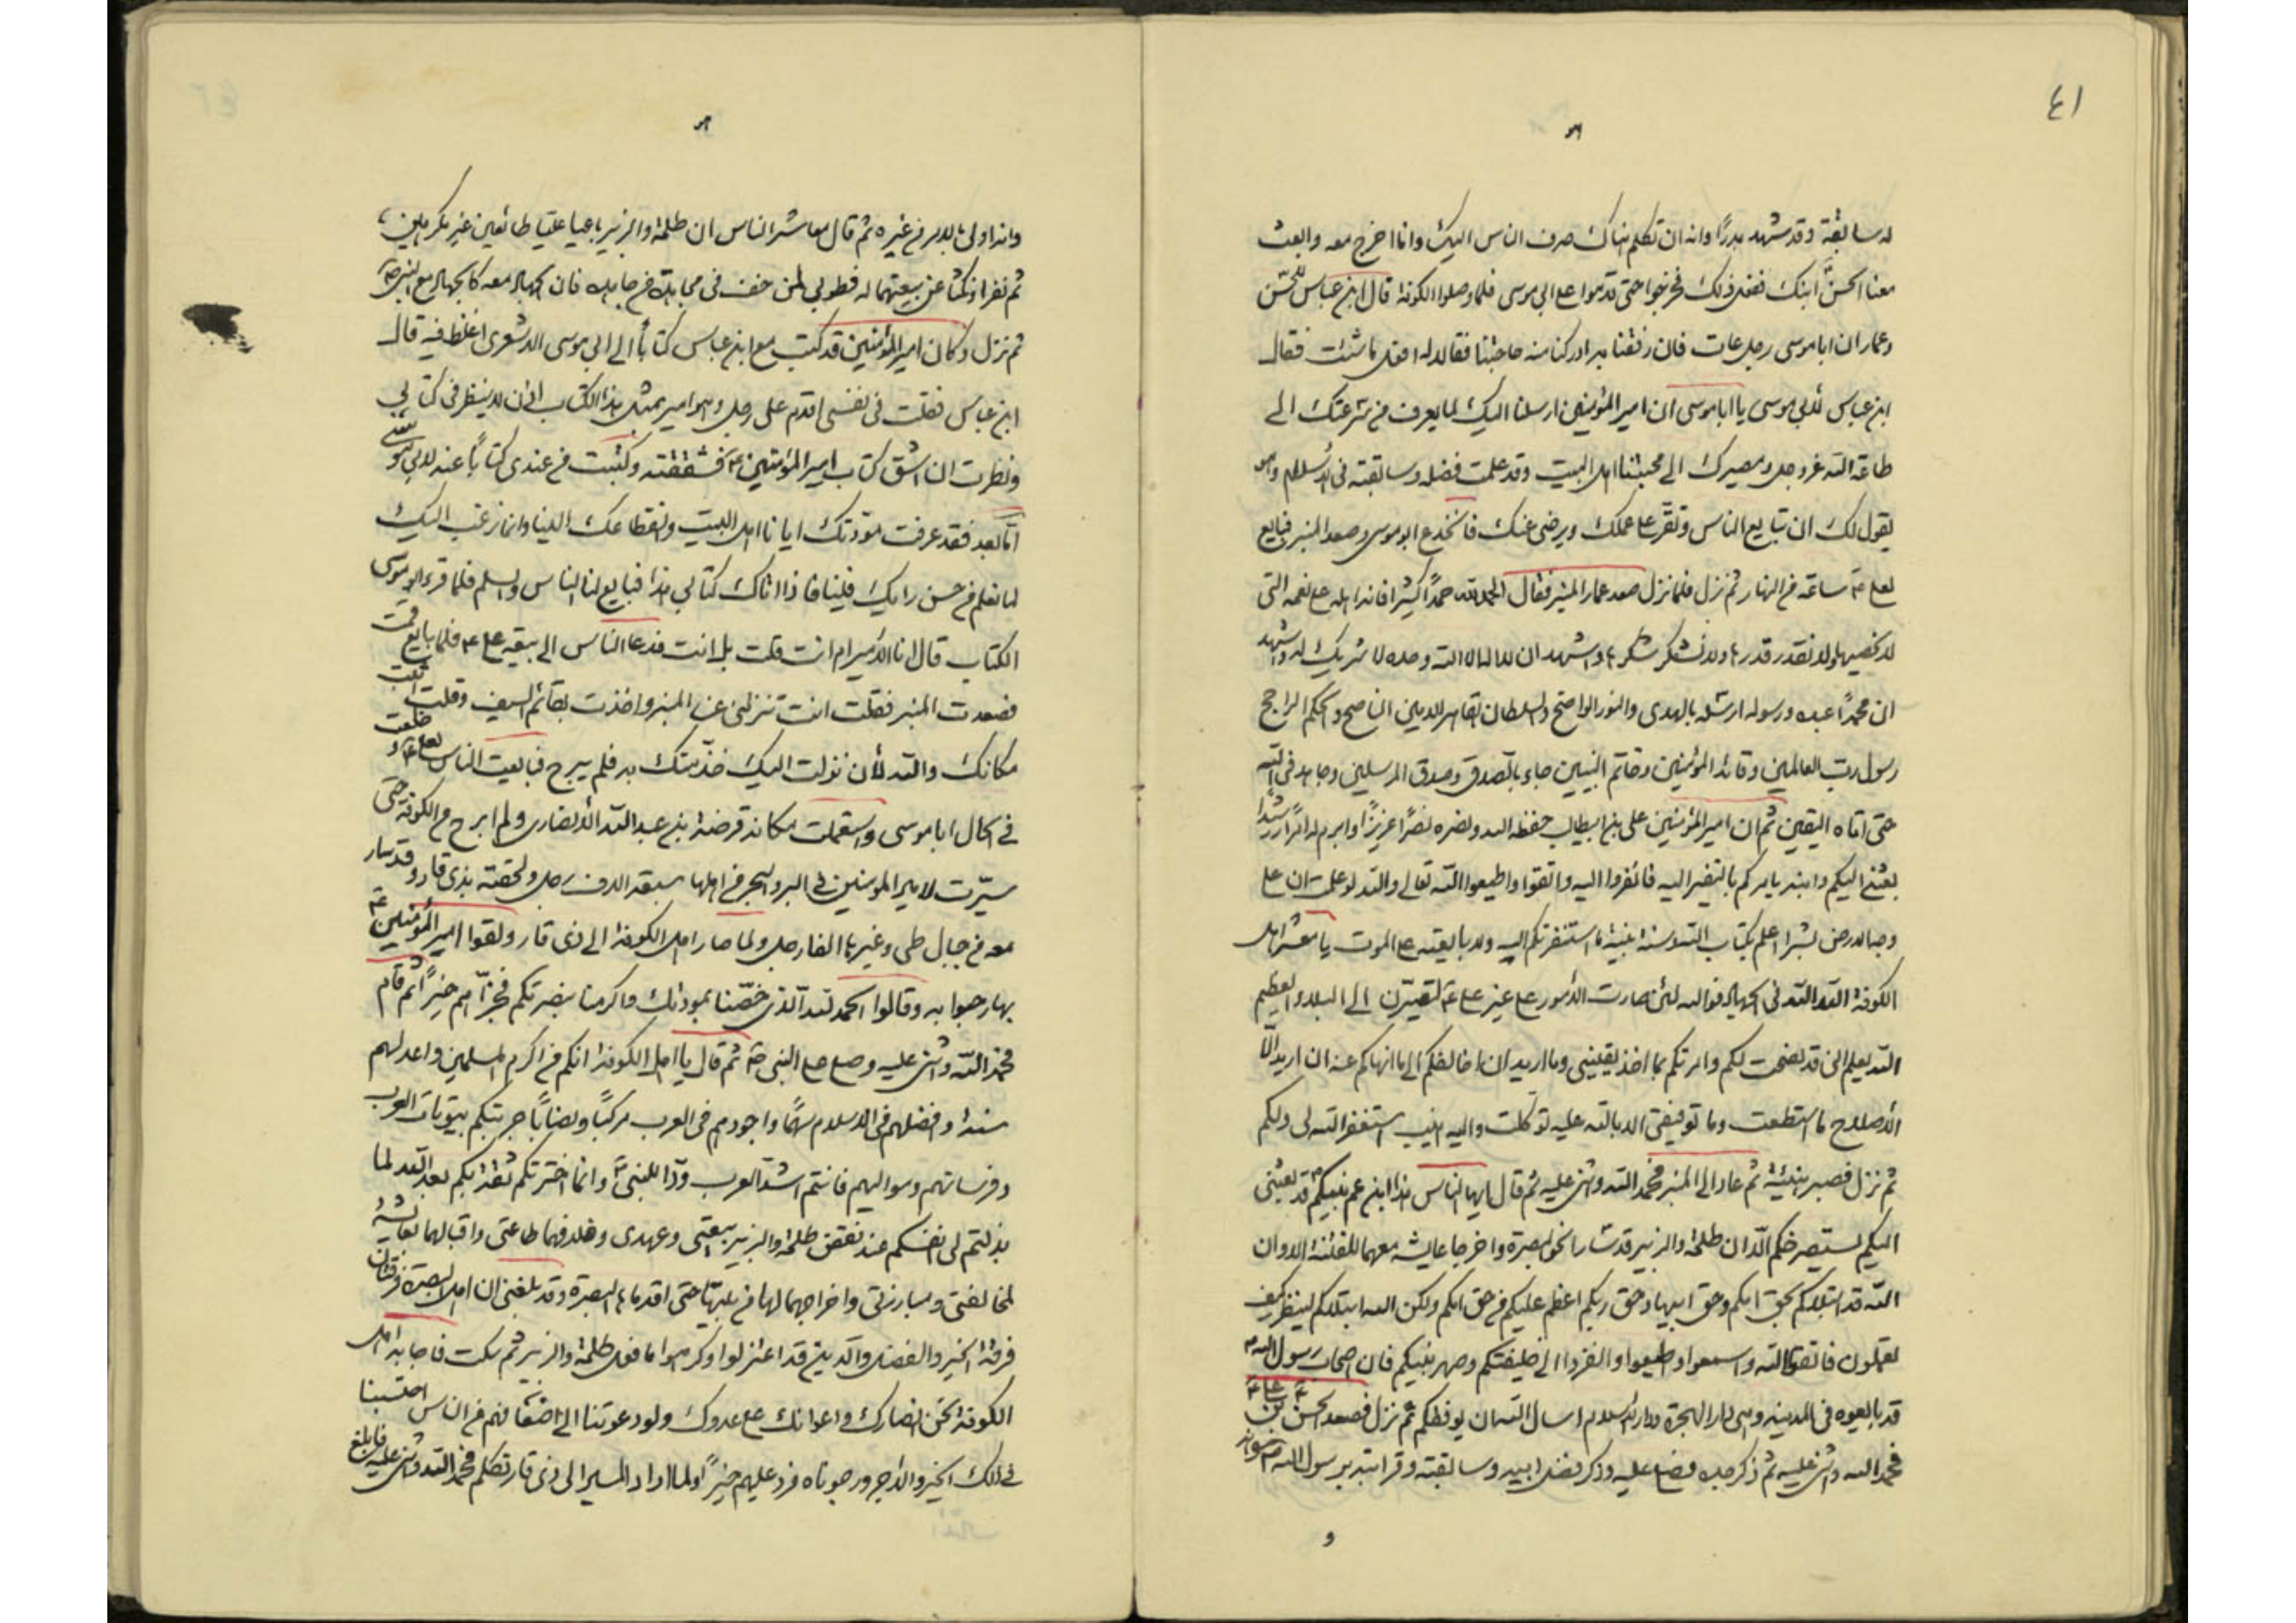 ٤١
له سابقة وقد شهد بدرًا وانه ان تكلم هناك صرف الناس اليك وانا اخرج معه وابعث
معنا الحسن ابنك ففعل ذلك فخرجوا حتى قدموا على ابي موسى فلما وصلوا الكوفة قال ابن عباس للحسن
وعمار ان ابا موسى رجل عات فان رفقنا به ادركنا منه حاجتنا فقالا له افعل ما شئت فقال
ابن عباس لابي موسى يا ابا موسى ان امير المؤمنين ارسلنا اليك لما يعرف من سرعتك الى
طاعة الله عز وجل ومصيرك الى محبتنا اهل البيت وقد علمت فضله وسابقته في الاسلام وهو
يقول لك ان تبايع الناس وتقر على عملك ويرضى عنك فانخدع ابو موسى وصعد المنبر فبايع
لعلي ع ساعة من النهار ثم نزل فلما نزل صعد عمار المنبر فقال الحمد لله حمدًا كثيرًا فانه اهله على نعمه التي
لا نحصيها ولا نقدر قدرها ولا نشكر شكرها واشهد ان لا اله الا الله وحده لا شريك له واشهد
ان محمدًا عبده ورسوله ارسله بالهدى والنور الواضح والسلطان القاهر الامين الناصح والحكم الراجح
رسول رب العالمين وقائد المؤمنين وخاتم النبيين جاء بالصدق وصدق المرسلين وجاهد في الله
حتى اتاه اليقين ثم ان امير المؤمنين علي بن ابيطالب حفظه الله ونصره نصرًا عزيزًا وابرم له امرًا رشدا
بعثني اليكم وابنه يامركم بالنفير اليه فانفروا اليه واتقوا واطيعوا الله تعالى والله لو علمت ان على
وجه الارض بشرا اعلم بكتاب الله وسنة نبيه ما استنفرتكم اليه ولا بايعته على الموت يا معشر اهل
الكوفة الله الله في الجهاد فوالله لئن صارت الامور على غير علي ع لتصيرن الى البلاء العظيم
الله يعلم اني قد نصحت لكم وامرتكم بما اخذ بيقيني وما اريد ان اخالفكم الى ما انهاكم عنه ان اريد الا
الاصلاح ما استطعت وما توفيقي الا بالله عليه توكلت واليه انيب استغفر الله لي ولكم
ثم نزل فصبر هنيئة ثم عاد الى المنبر فحمد الله واثنى عليه ثم قال ايها الناس هذا ابن عم نبيكم قد بعثني
اليكم يستصرخكم الا ان طلحة والزبير قد سارا نحو البصرة واخرجا عايشة معهما للفتنة الا وان
الله قد ابتلاكم بحق امكم وحق ابيها وحق ربكم اعظم عليكم من حق امكم ولكن الله ابتلاكم لينظر كيف
تعملون فاتقوا الله واسمعوا واطيعوا وانفروا الى خليفتكم وصهر نبيكم فان اصحاب رسول الله ص
قد بايعوه في المدينة وهي دار الهجرة ودار الاسلام اسال الله ان يوفقكم ثم نزل فصعد الحسن بن علي ع
فحمد الله واثنى عليه ثم ذكر جده فصلى عليه وذكر فضل ابيه وسابقته وقرابته برسول الله ص وانه
و
وانه اولى بالامر من غيره ثم قال معاشر الناس ان طلحة والزبير بايعا عليا طائعين غير مكرهين
ثم نفرا ونكثا عن بيعتهما له فطوبى لمن خف في مجاهدة من جاهده فان الجهاد معه كالجهاد مع النبي ص
ثم نزل وكان امير المؤمنين قد كتب مع ابن عباس كتابًا الى ابي موسى الاشعري اغلظ فيه قال
ابن عباس فقلت في نفسي اقدم على رجل وهو امير بمثل هذا الكتاب الى ان لا ينظر في كتابي
ونظرت ان اشق كتاب امير المؤمنين ع فشققته وكتبت من عندي كتابًا عنه لابي موسى
اما بعد فقد عرفت مودتك ايانا اهل البيت وانقطاعك الينا وانما نرغب اليك
لما نعلم من حسن رايك فينا فاذا اتاك كتابي هذا فبايع لنا الناس والسلم فلما قرء ابو موسى
الكتاب قال انا الامير ام انت قلت بل انت فدعا الناس الى بيعة علي ع فلما بايع قمت
فصعدت المنبر فقلت انت تنزلني عن المنبر واخذت بقائم السيف وقلت اثبت
مكانك والله لأن نزلت اليك خذمتك به فلم يبرح فبايعت الناس لعلي ع وخلعت
في الحال ابا موسى واستعملت مكانه قرضة بن عبد الله الأنصاري ولم ابرح من الكوفة حتى
سيرت لامير المؤمنين في البر والبحر من اهلها سبعة الاف رجل ولحقته بذي قار وقد سار
معه من جبال طي وغيرها الفا رجل ولما صار اهل الكوفة الى ذي قار ولقوا امير المؤمنين ع
بها رحبوا به وقالوا الحمد لله الذي خصنا بمودتك واكرمنا بنصرتكم فجزاهم خيرًا ثم قام
فحمد الله واثنى عليه وصلى على النبي ص ثم قال يا اهل الكوفة انكم من اكرم المسلمين واعدلهم
سنة وافضلهم في الاسلام سهمًا واجودهم في العرب مركبًا ونصابًا جربتكم بيوتات العرب
وفرسانهم ومواليهم فانتم اشد العرب ودًا للنبي ص وانما اخترتكم ثقة بكم بعد الله لما
بذلتم لي انفسكم عند نقض طلحة والزبير بيعتي وعهدي وخلافهما طاعتي واقبالهما بعايشة
لمخالفتي ومبارزتي واخراجهما لها من بيتها حتى اقدماها البصرة وقد بلغني ان اهل البصرة فرقتان
فرقة الخير والفضل والدين قد اعتزلوا وكرهوا ما فعل طلحة والزبير ثم سكت فاجابه اهل
الكوفة نحن انصارك واعوانك على عدوك ولو دعوتنا الى اضعافهم من الناس احتسبنا
في ذلك الخير والاجر ورجوناه فرد عليهم خيرًا ولما اراد المسير الى ذي قار تكلم فحمد الله واثنى عليه فابلغ